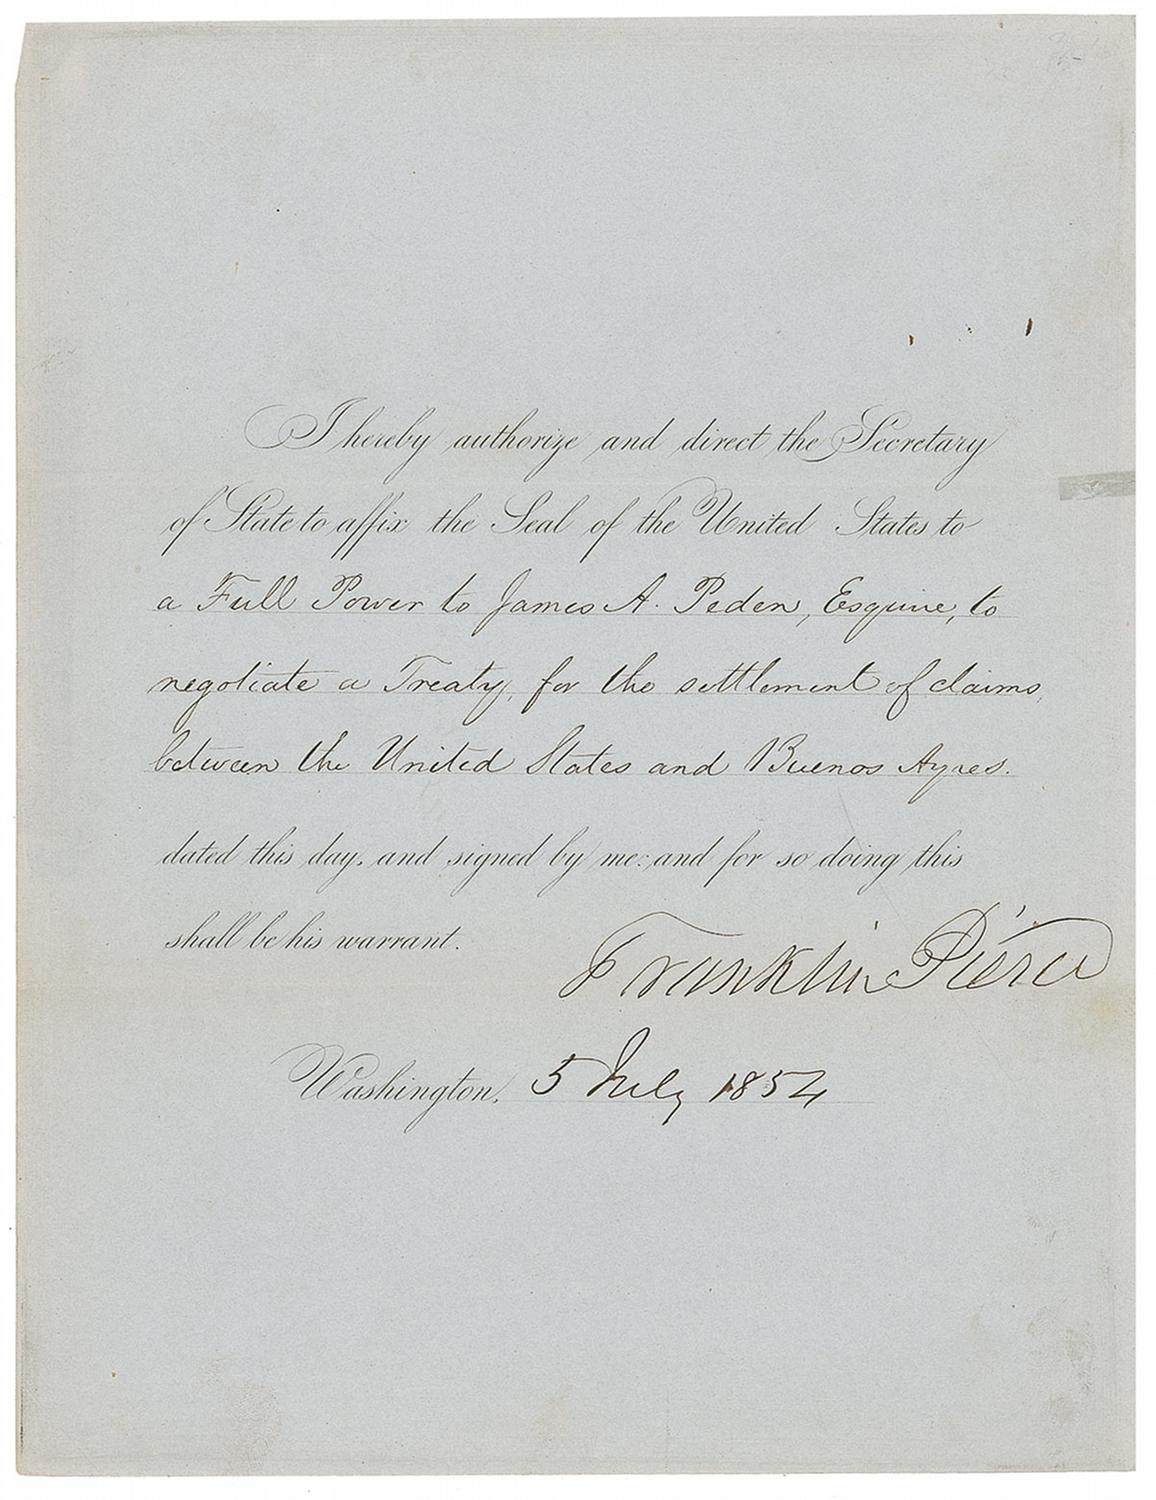 I hereby authorize and direct the Secretary
of State to affix the Seal of the United States to
a Full Power to James A. Peden, Esquire, to
negotiate a Treaty, for the settlement of claims,
between the United States and Buenos Ayres.
dated this day, and signed by me: and for so doing this
shall be his warrant.
Franklin Pierce
Washington, 5 July 1854